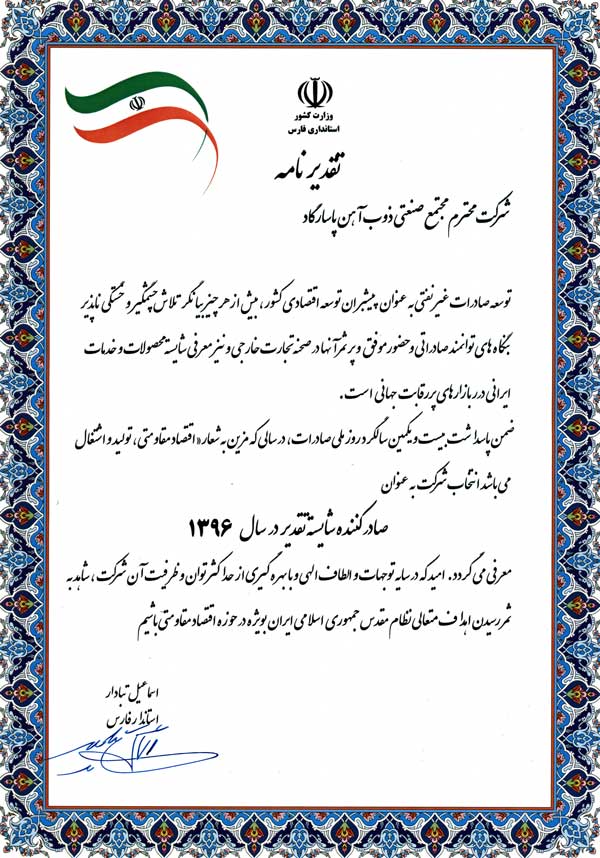 وزارت کشور
استانداری فارس
تقدیر نامه
شرکت محترم مجتمع صنعتی ذوب آهن پاسارگاد
توسعه صادرات غیر نفتی به عنوان پیشبران توسعه اقتصادی کشور، بیش از هر چیز بیانگر تلاش چشمگیر و خستگی ناپذیر
بنگاه های توانمند صادراتی و حضور موفق و پر ثمر آنها در صحنه تجارت خارجی و نیز معرفی شایسته محصولات و خدمات
ایرانی در بازارهای پر رقابت جهانی است.
ضمن پاسداشت بیست و یکمین سالگرد روز ملی صادرات، در سالی که مزین به شعار «اقتصاد مقاومتی، تولید و اشتغال
می باشد انتخاب شرکت به عنوان
صادر کننده شایسته تقدیر در سال ۱۳۹۶
معرفی می گردد. امید که در سایه توجهات و الطاف الهی و با بهره گیری از حداکثر توان و ظرفیت آن شرکت، شاهد به
ثمر رسیدن اهداف متعالی نظام مقدس جمهوری اسلامی ایران بویژه در حوزه اقتصاد مقاومتی باشیم
اسماعیل تبادار
استاندار فارس